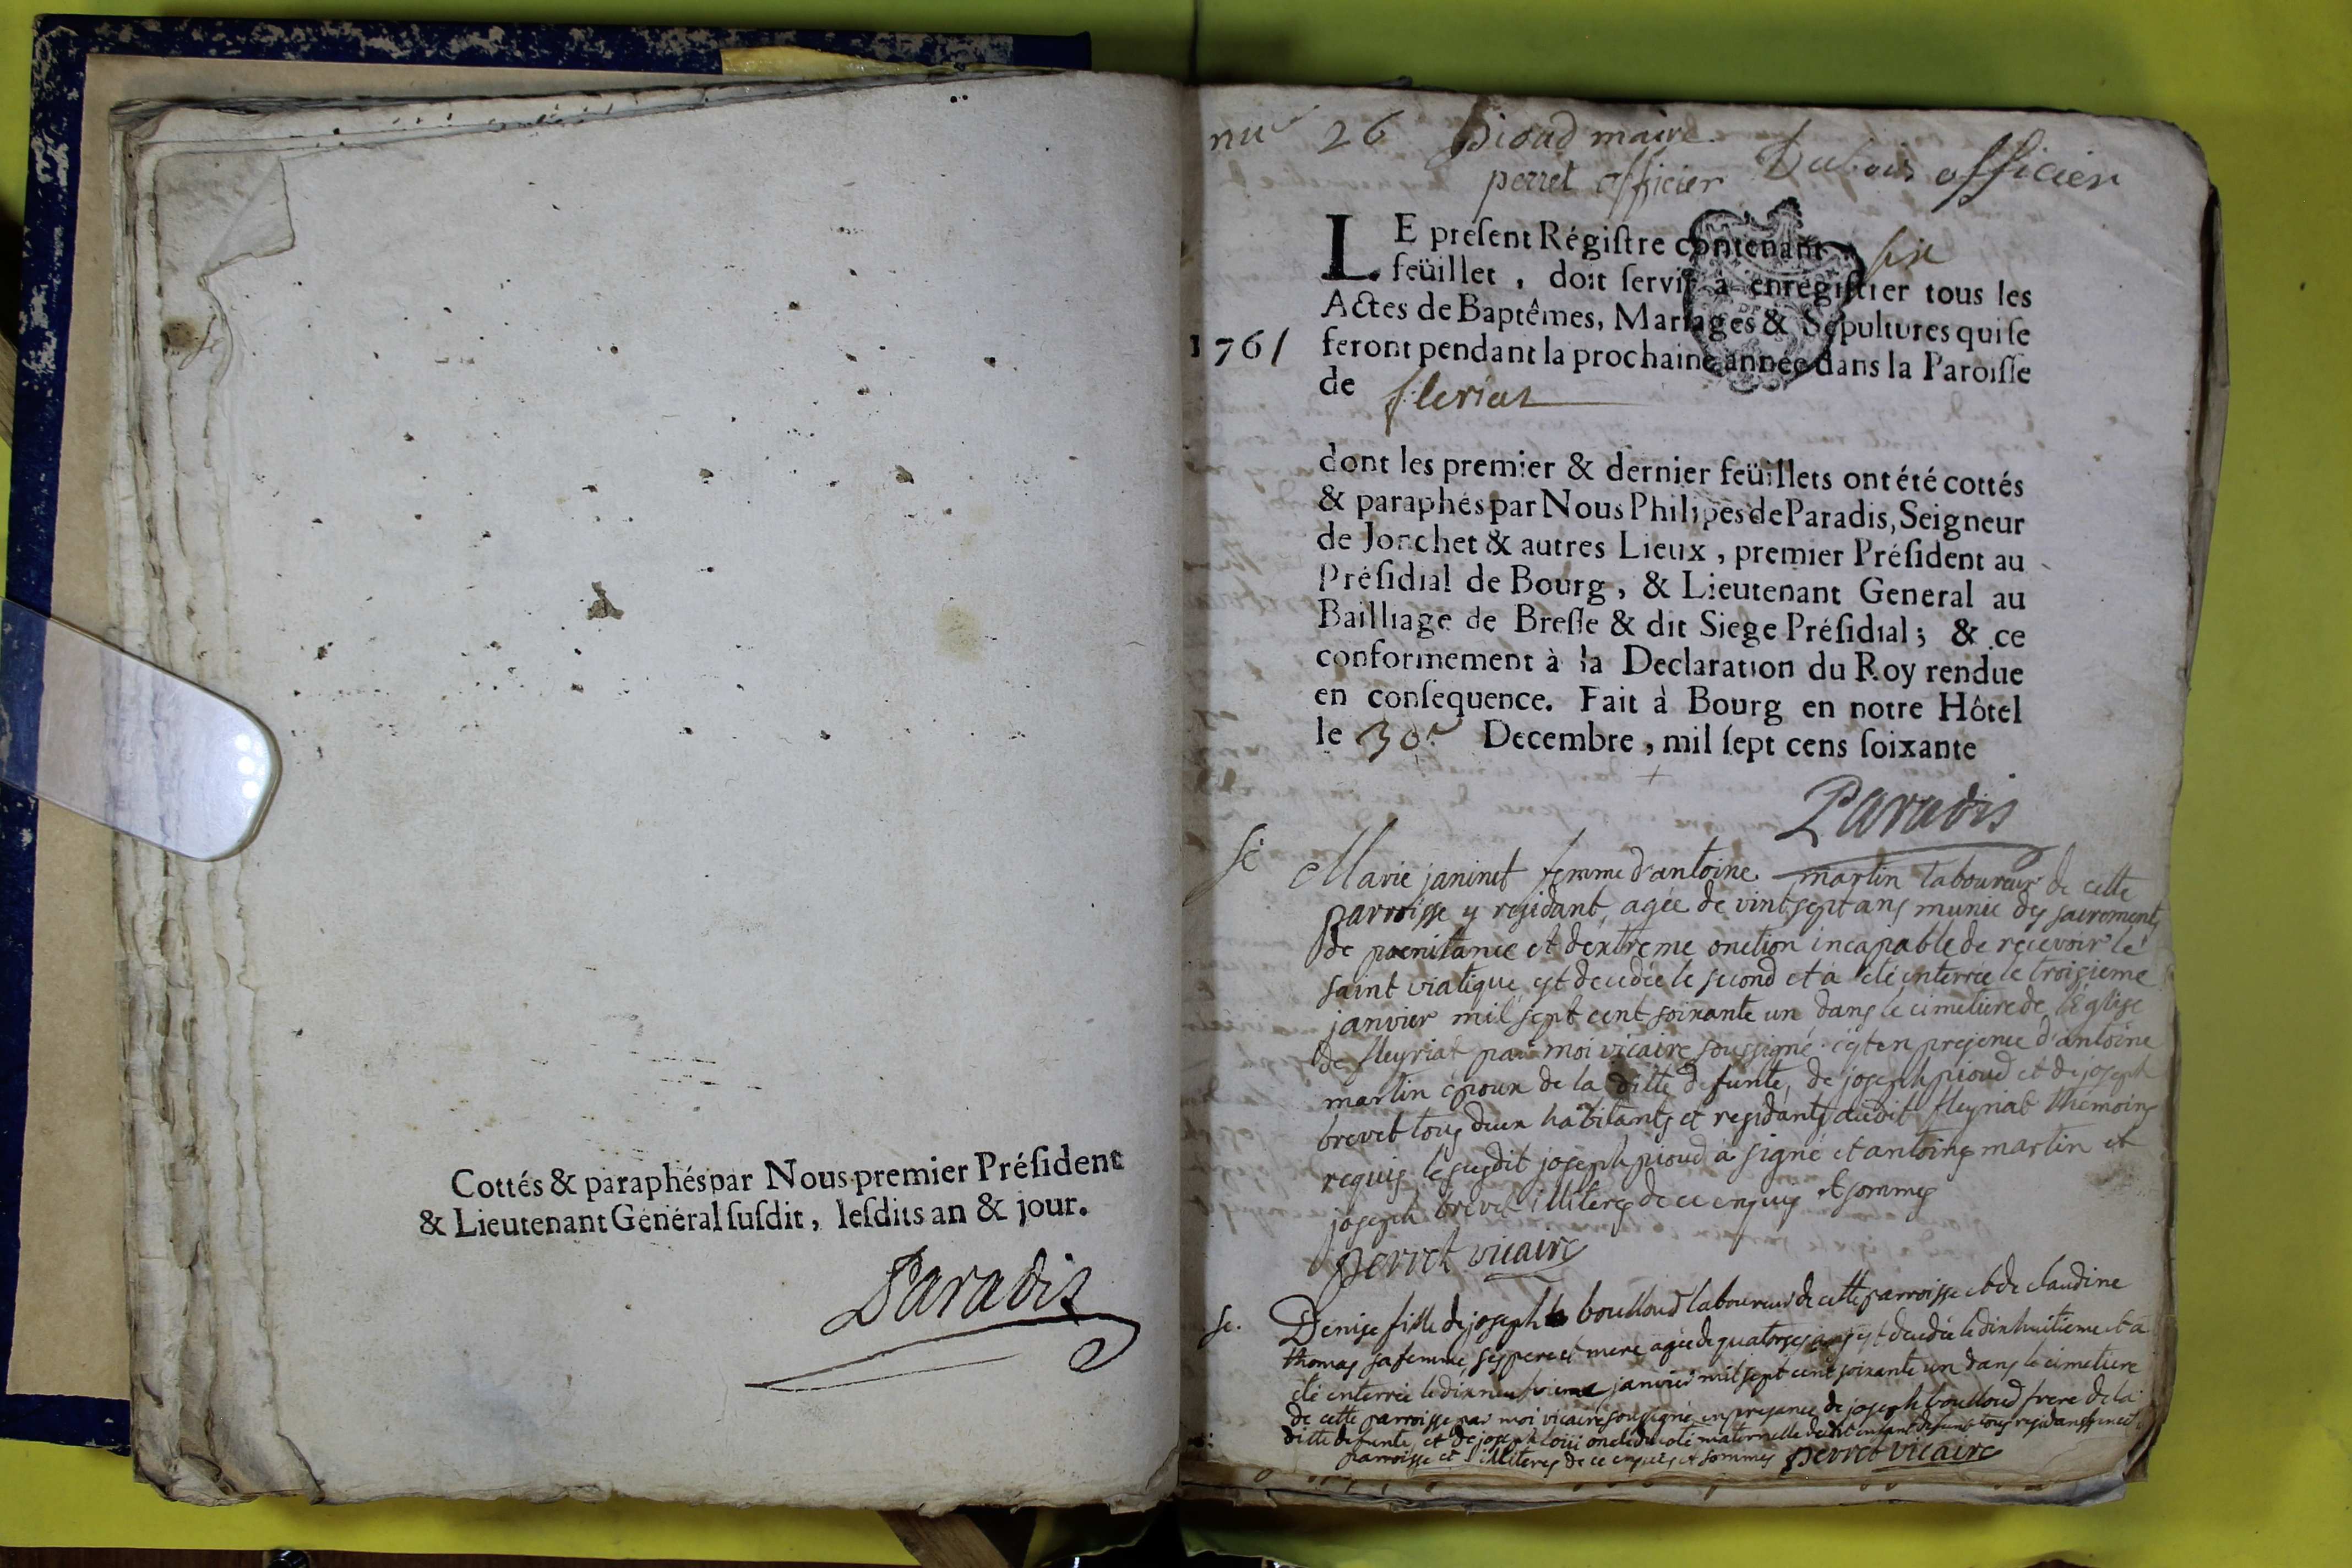 Cottés & paraphés par Nous premier Préſident
& Lieutenant Général ſuſdit, leſdits an & jour.
Paradis
nu 26 pioud maire
perret officier Dubois officier
LE preſent Régiſtre contenant ſix
feüillet, doit ſervir à enregiſtrer tous les
Actes de Baptêmes, Mariages & Sépultures qui ſe
1761 feront pendant la prochaine année dans la Paroiſſe
de fleriat
dont les premier & dernier feüillets ont été cottés
& paraphés par Nous Philipes de Paradis, Seigneur
de Jonchet & autres Lieux, premier Préſident au
Préſidial de Bourg, & Lieutenant General au
Bailliage de Breſſe & dit Siege Préſidial; & ce
conformement à la Declaration du Roy rendue
en conſequence. Fait à Bourg en notre Hôtel
le 30e Decembre, mil ſept cens ſoixante
Paradis
Se Marie janinet femme d'antoine martin laboureur de cette
parroisse y residant, agée de vint sept ans munie des sacrements
de poenitance et d'extreme onction incapable de recevoir le
saint viatique est decedée le second et a été enterree le troisieme
janvier mil sept cent soixante un dans le cimetiere de l'Eglise
de fleyriat par moi vicaire soussigné c'est en presence d'antoine
martin époux de la ditte defunte, de joseph pioud et de joseph
brevet tous deux habitants et residants dudit fleyriat thémoins
requis le susdit joseph pioud a signé et antoine martin et
joseph brevet illiterés de ce enquis et sommés
perret vicaire
Se. Denise fille de joseph boulloud laboureur de cette parroisse et de claudine
thomas sa femme, ses pere et mere agée de quatorses ans est decedée le dixhuitieme et a
été enterrée le dixneuvieme janvier mil sept cent soixante un dans le cimetiere
de cette parroisse par moi vicaire soussigné en presance de joseph boulloud frere de la
ditte defunte, et de joseph oncle du coté maternelle dudit enfant defunt tous residants
parroisse et illiterés de ce enquis et sommés perret vicaire